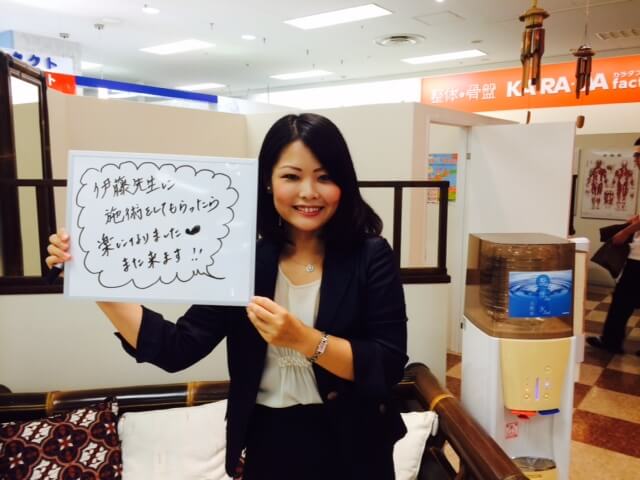 タクト
整体・骨盤 KARADA カラダフ
fact
伊藤先生に
施術をしてもらったら
楽になりました♥
また来ます!!